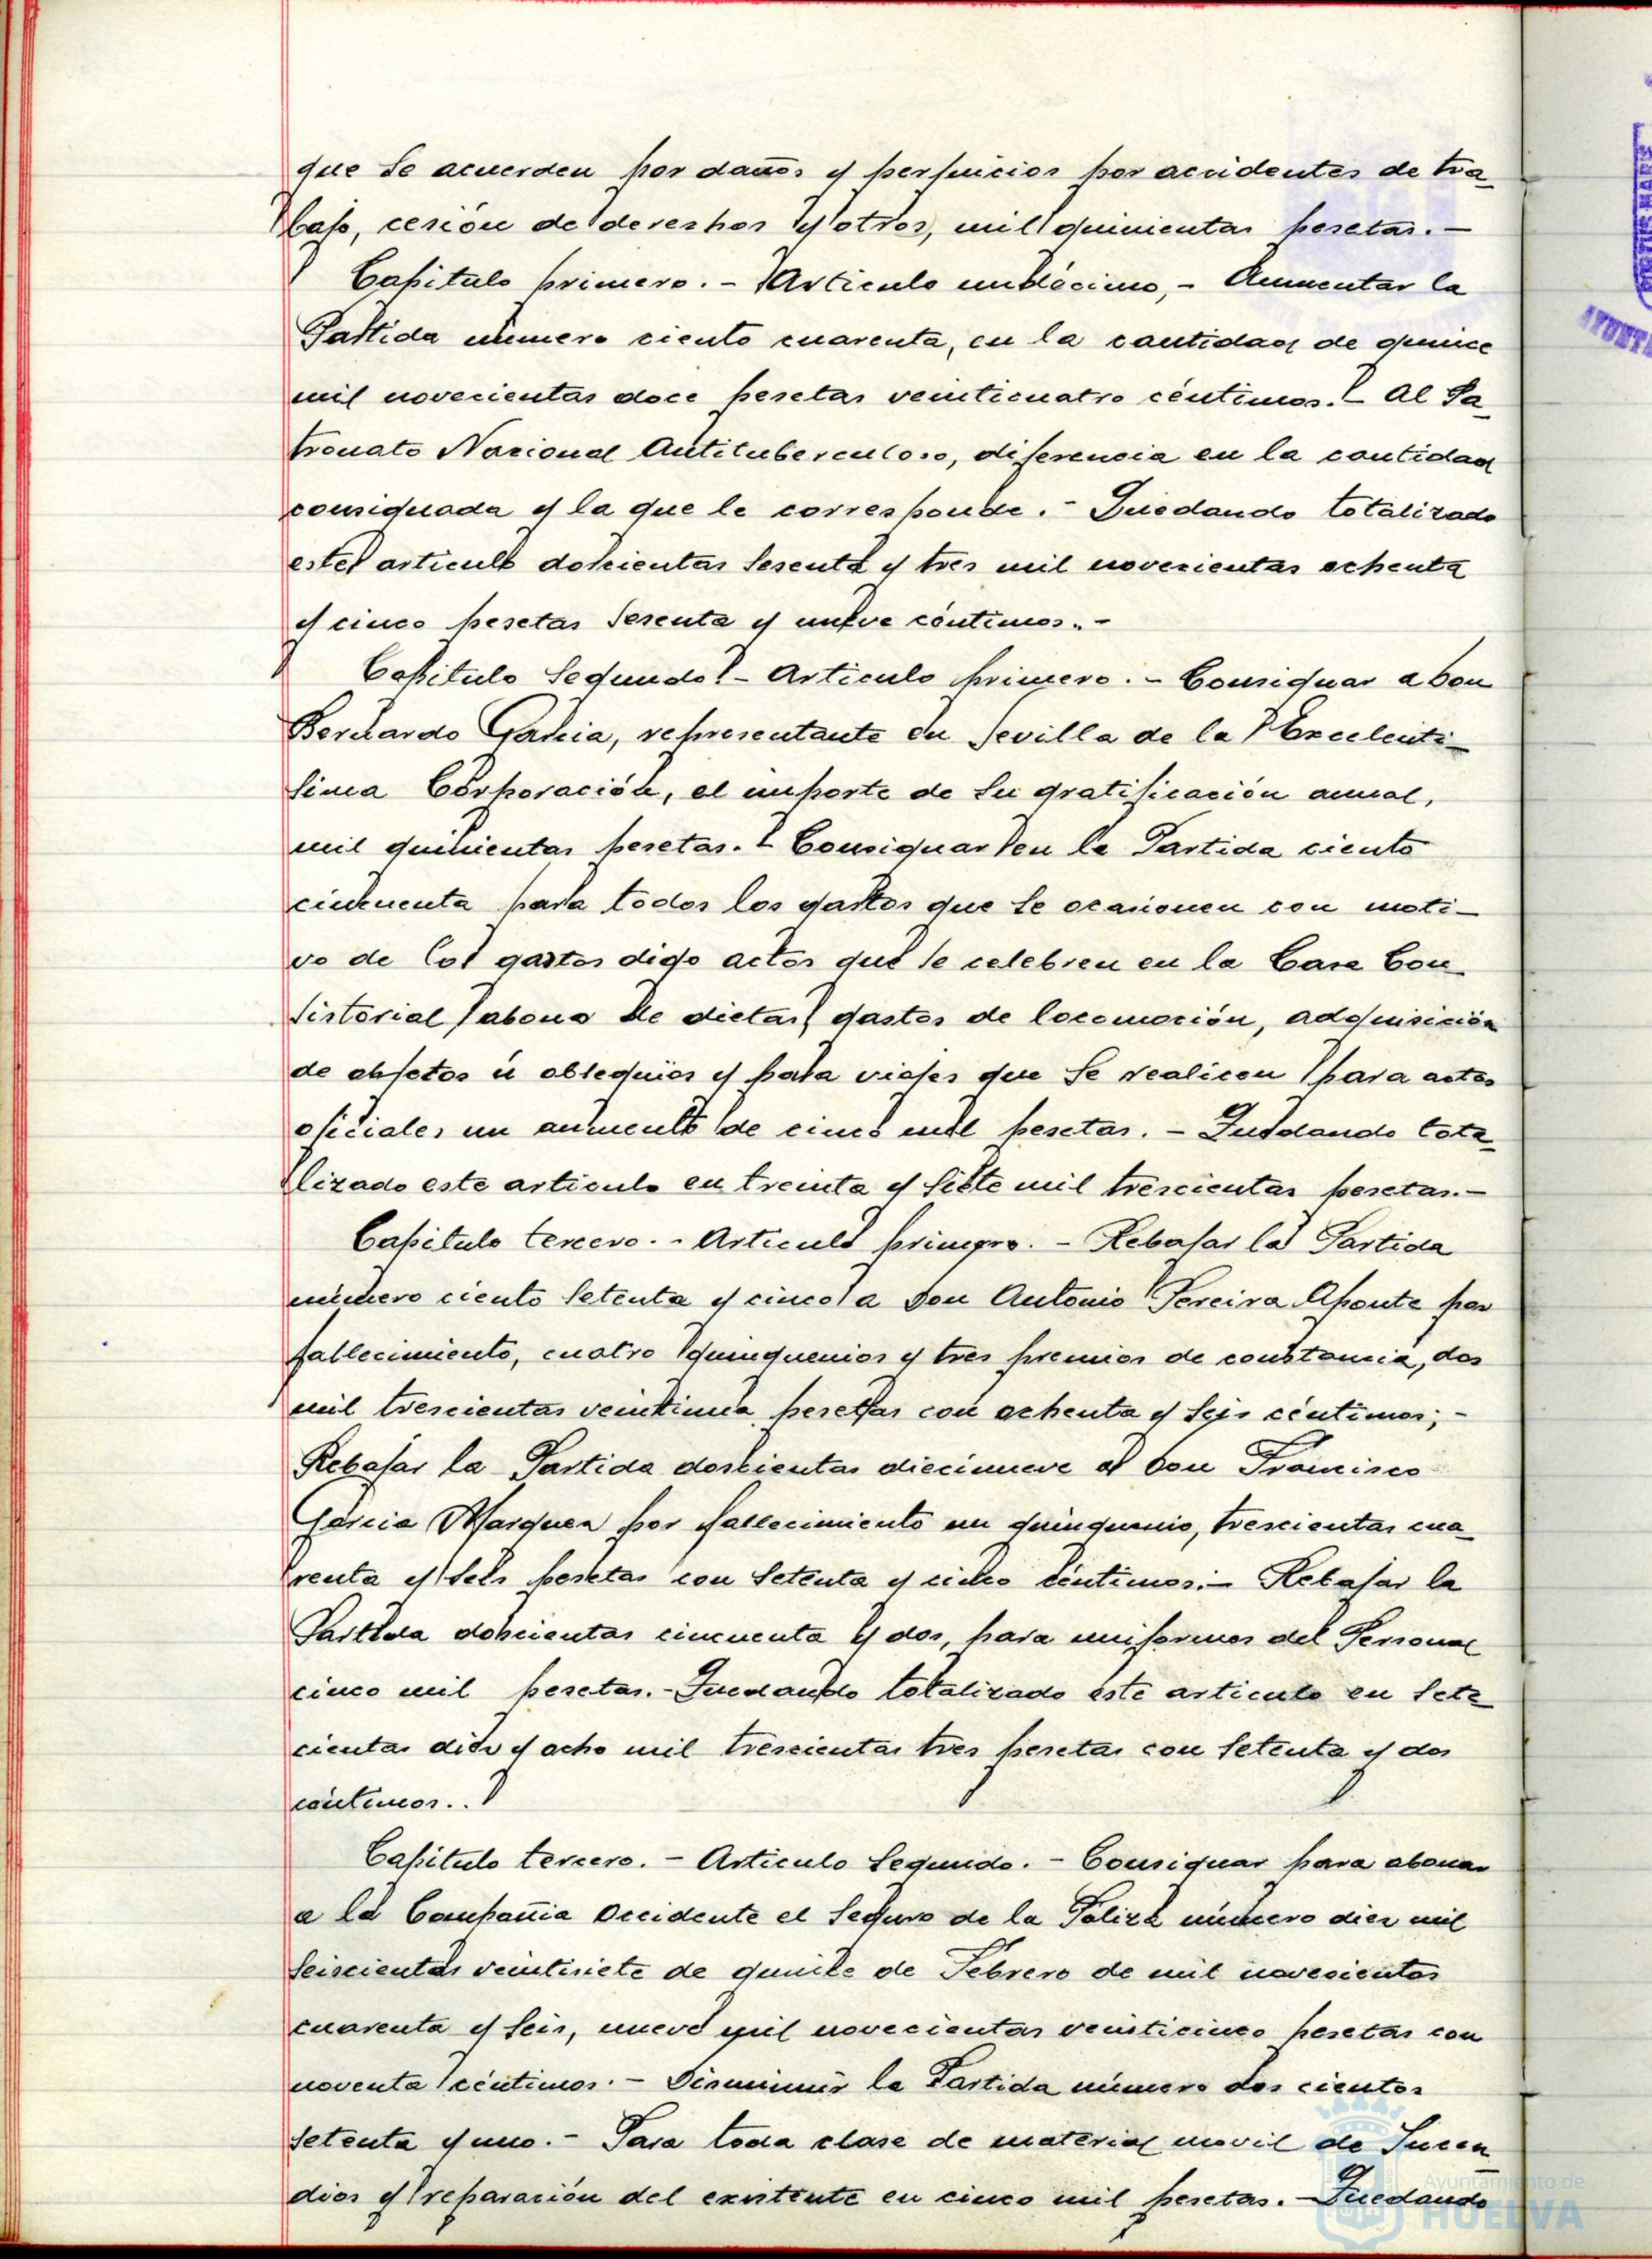 que se acuerden por daños y perjuicios por accidentes de tra_
bajo, cesión de derechos y otros, mil quinientas pesetas.-
Capitulo primero.- Articulo undécimo,- Aumentar la
Partida número ciento cuarenta, en la cantidad de quince
mil novecientas doce pesetas veinticuatro céntimos.- Al Pa_
tronato Nacional Antituberculoso, diferencia en la cantidad
consignada y la que le corresponde.- Quedando totalizado
este articulo doscientas sesenta y tres mil novecientas ochenta
y cinco pesetas sesenta y nueve céntimos.-
Capitulo Segundo.- Articulo primero.- Consignar a Don
Bernardo Garcia, representante en Sevilla de la Excelenti_
sima Corporación, el importe de su gratificación anual,
mil quinientas pesetas.- Consignar en la Partida ciento
cincuenta para todos los gastos que se ocasionen con moti_
vo de los gastos digo actos que se celebren en la Casa Con_
sistorial abono de dietas, gastos de locomoción, adquisición
de objetos ú obsequios y para viajes que se realicen para actos
oficiales un aumento de cinco mil pesetas.- Quedando tota_
lizado este articulo en treinta y siete mil trescientas pesetas.-
Capitulo tercero.- Articulo primero.- Rebajar la Partida
número ciento setenta y cinco a Don Antonio Pereira Aponte por
fallecimiento, cuatro quinquenios y tres premios de constancia, dos
mil trescientas veintiuna pesetas con ochenta y seis céntimos;-
Rebajar la Partida doscientas diecinueve a Don Francisco
Garcia Marquez por fallecimiento un quinquenio, trescientas cua_
renta y seis pesetas con setenta y cinco céntimos;- Rebajar la
Partida doscientas cincuenta y dos, para uniformes del Personal
cinco mil pesetas.- Quedando totalizado este articulo en sete_
cientas diez y ocho mil trescientas tres pesetas con setenta y dos
céntimos..
Capitulo tercero.- Articulo Segundo.- Consignar para abonar
a la Compañia Occidente el Seguro de la Póliza número diez mil
seiscientas veintisiete de quince de Febrero de mil novecientos
cuarenta y seis, nueve mil novecientas veinticinco pesetas con
noventa céntimos.- Disminuir la Partida número dos cientos
setenta y uno.- Para toda clase de material movil de Incen_
dios y reparación del existente en cinco mil pesetas.- Quedando
Ayuntamiento de
HUELVA